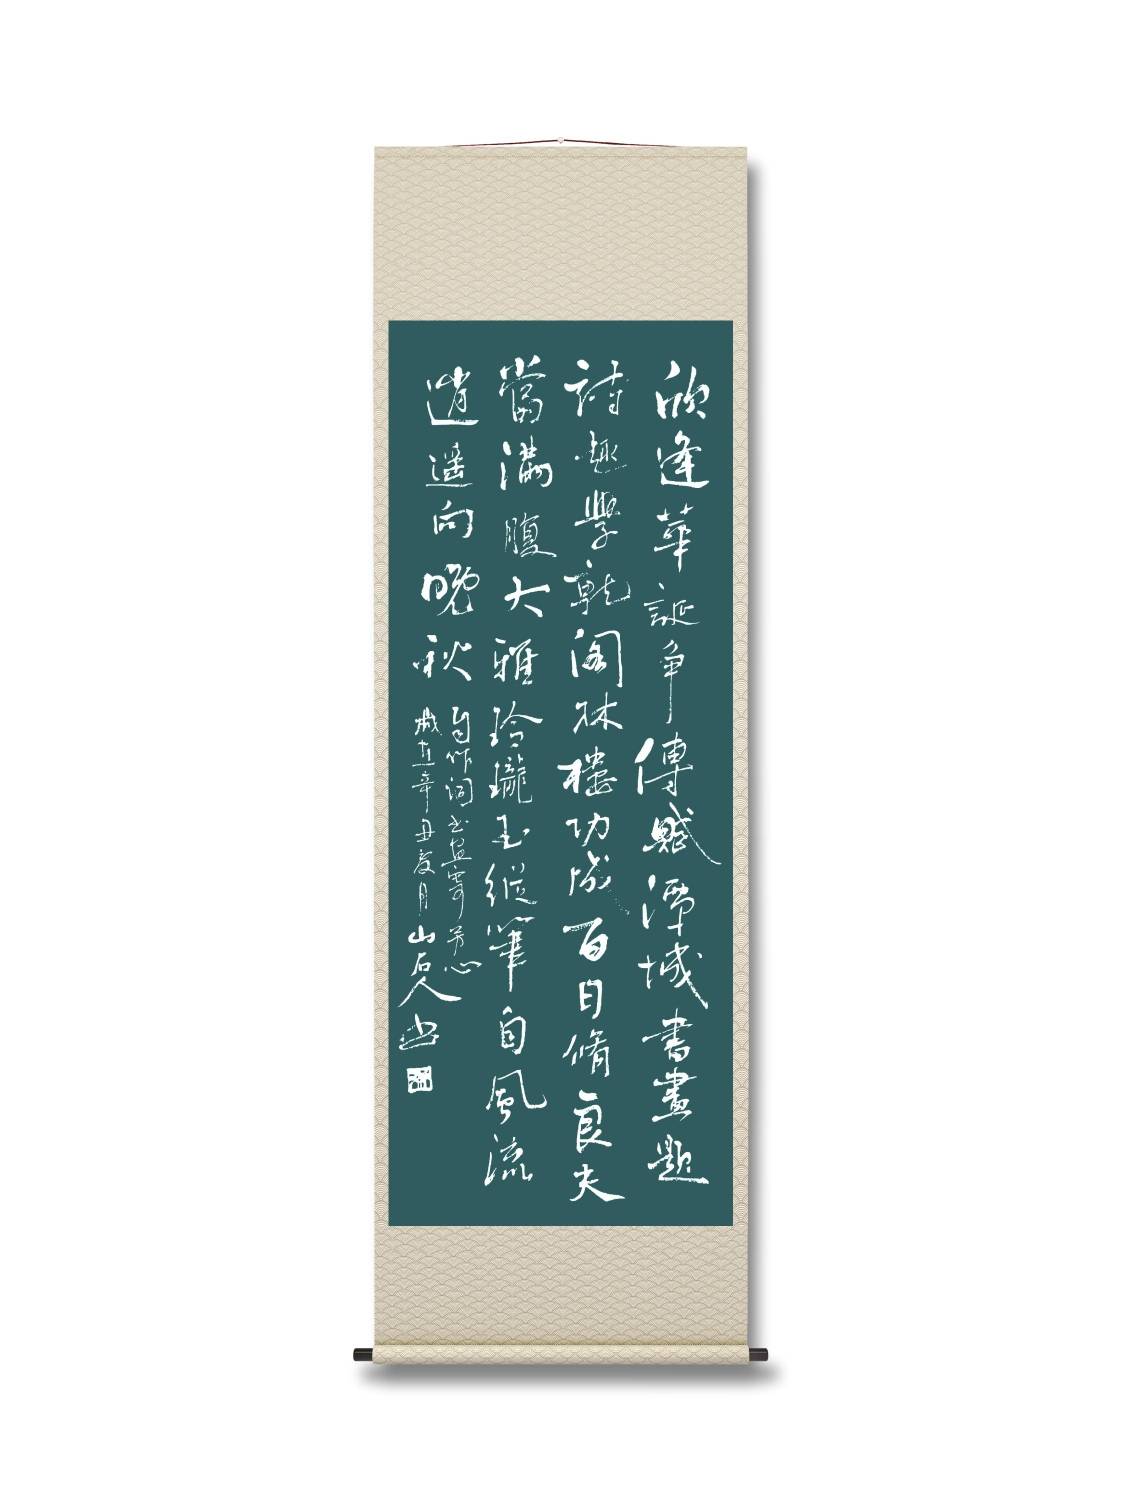 欣逢華誕争傳賦潭城書畫題
詩趣學乾阁牀樓功成百日脩良夫
當滿腹大雅玲瓏玉縱筆自風流
逍遥向晚秋
自作词寄芳心
歲在辛丑夏月山石人书